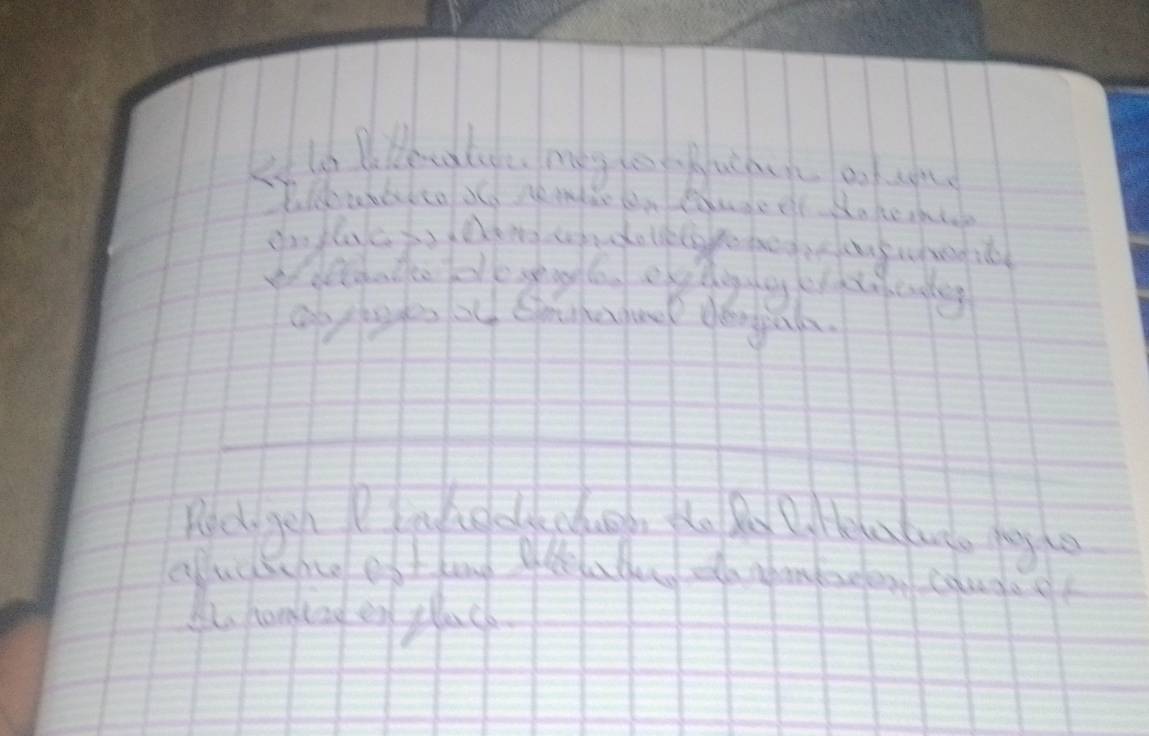 << la litterature negro-africain est une
litterature de remise en cause et de remise
en place >>. Dans un developpement argumenté
et d'exemple expliquez et
ces propos de Emmanuel
Rediger l'introduction de la litterature negro
africaine est une litterature de remise en cause et
de remise en place.